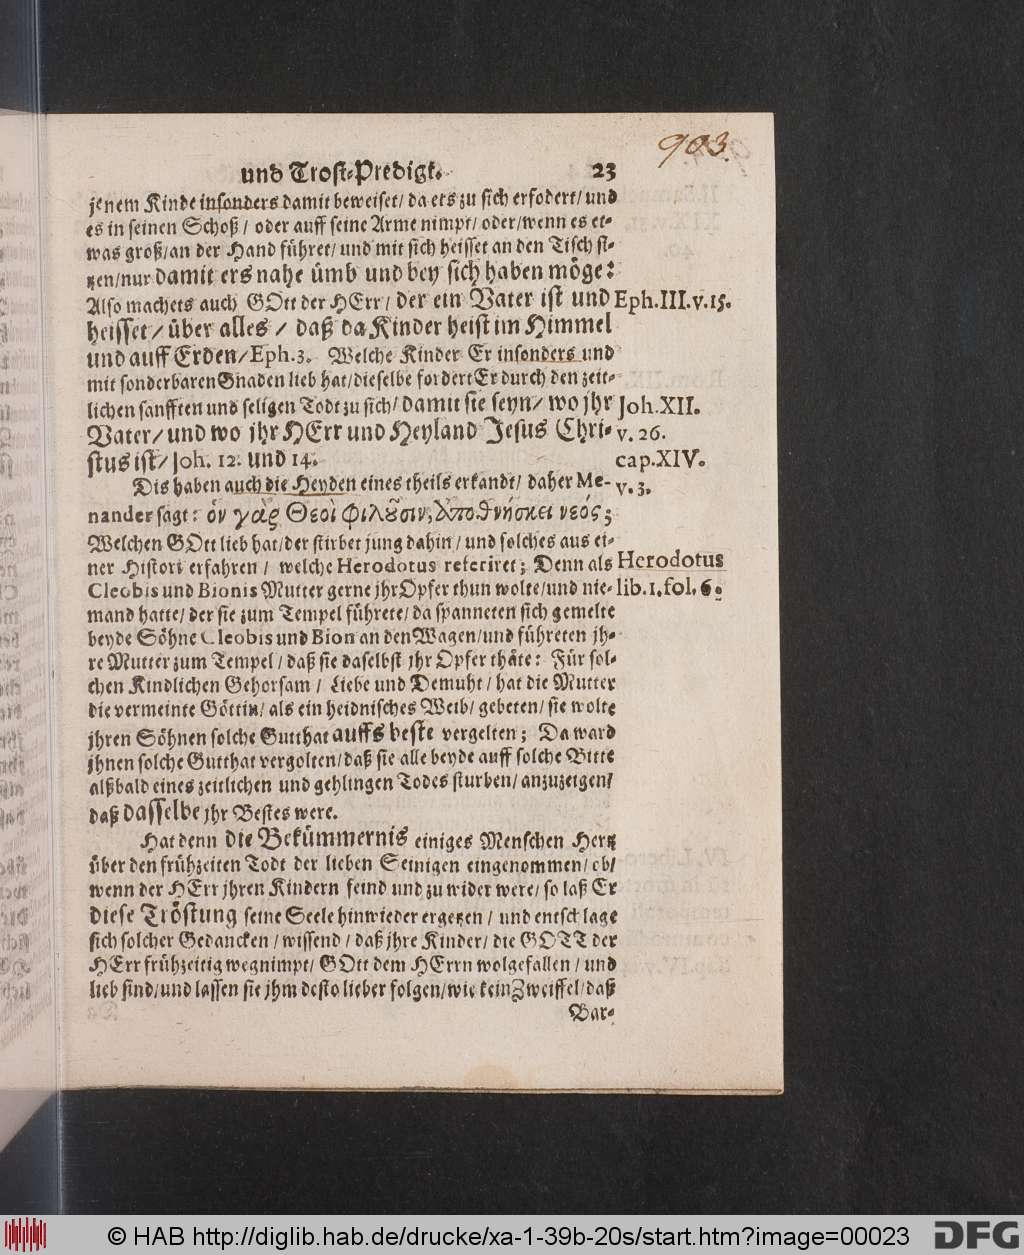 903.
und Trost-Predigt. 23
jenem Kinde insonders damit beweiset/ da ers zu sich erfodert/ und
es in seinen Schoß/ oder auff seine Arme nimpt/ oder/ wenn es et-
was groß/ an der Hand führet/ und mit sich heisset an den Tisch si-
tzen/ nur damit ers nahe ümb und bey sich haben möge:
Also machets auch GOtt der HErr/ der ein Vater ist und Eph.III.v.15.
heisset/ über alles/ daß da Kinder heist im Himmel
und auff Erden/ Eph.3. Welche Kinder Er insonders und
mit sonderbaren Gnaden lieb hat/ dieselbe fordert Er durch den zeit-
lichen sanfften und seligen Todt zu sich/ damit sie seyn/ wo jhr Joh.XII.
Vater/ und wo jhr HErr und Heyland Jesus Chri- v. 26.
stus ist/ Joh. 12. und 14. cap.XIV.
Dis haben auch die Heyden eines theils erkandt/ daher Me- v. 3.
nander sagt: ὁν γὰρ Θεοὶ φιλοῦσιν, ἀποθνήσκει νεός;
Welchen GOtt lieb hat/ der stirbet jung dahin/ und solches aus ei-
ner Histori erfahren/ welche Herodotus referiret; Denn als Herodotus
Cleobis und Bionis Mutter gerne jhr Opfer thun wolte/ und nie- lib.1.fol.6.
mand hatte/ der sie zum Tempel führete/ da spanneten sich gemelte
beyde Söhne Cleobis und Bion an den Wagen/ und führeten jh-
re Mutter zum Tempel/ daß sie daselbst jhr Opfer thäte: Für sol-
chen Kindlichen Gehorsam/ Liebe und Demuht/ hat die Mutter
die vermeinte Göttin/ als ein heidnisches Weib/ gebeten/ sie wolte
jhren Söhnen solche Gutthat auffs beste vergelten; Da ward
jhnen solche Gutthat vergolten/ daß sie alle beyde auff solche Bitte
alßbald eines zeitlichen und gehlingen Todes sturben/ anzuzeigen/
daß dasselbe jhr Bestes were.
Hat denn die Bekümmernis einiges Menschen Hertz
über den frühzeiten Todt der lieben Seinigen eingenommen/ ob/
wenn der HErr jhren Kindern feind und zu wider were/ so laß Er
diese Tröstung seine Seele hinwieder ergetzen/ und entschlage
sich solcher Gedancken/ wissend/ daß jhre Kinder/ die GOTT der
HErr frühzeitig wegnimpt/ GOtt dem HErrn wolgefallen/ und
lieb sind/ und lassen sie jhm desto lieber folgen/ wie kein Zweiffel/ daß
Bar-
© HAB http://diglib.hab.de/drucke/xa-1-39b-20s/start.htm?image=00023 DFG